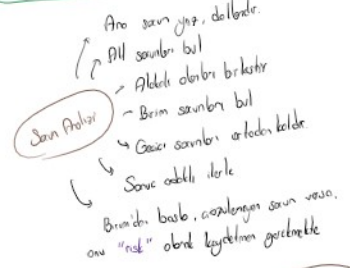 Ana sorun yaz, dallandır.
Alt sorunları bul
Alakalı olanları birleştir
Birim sorunları bul
Sorun Analizi
Gecici sorunları ortadan kaldır.
Sonuc odaklı ilerle
Birimiden baska, cozulemeyen sorun varsa,
onu "risk" olarak kaydetmen gerekmekte